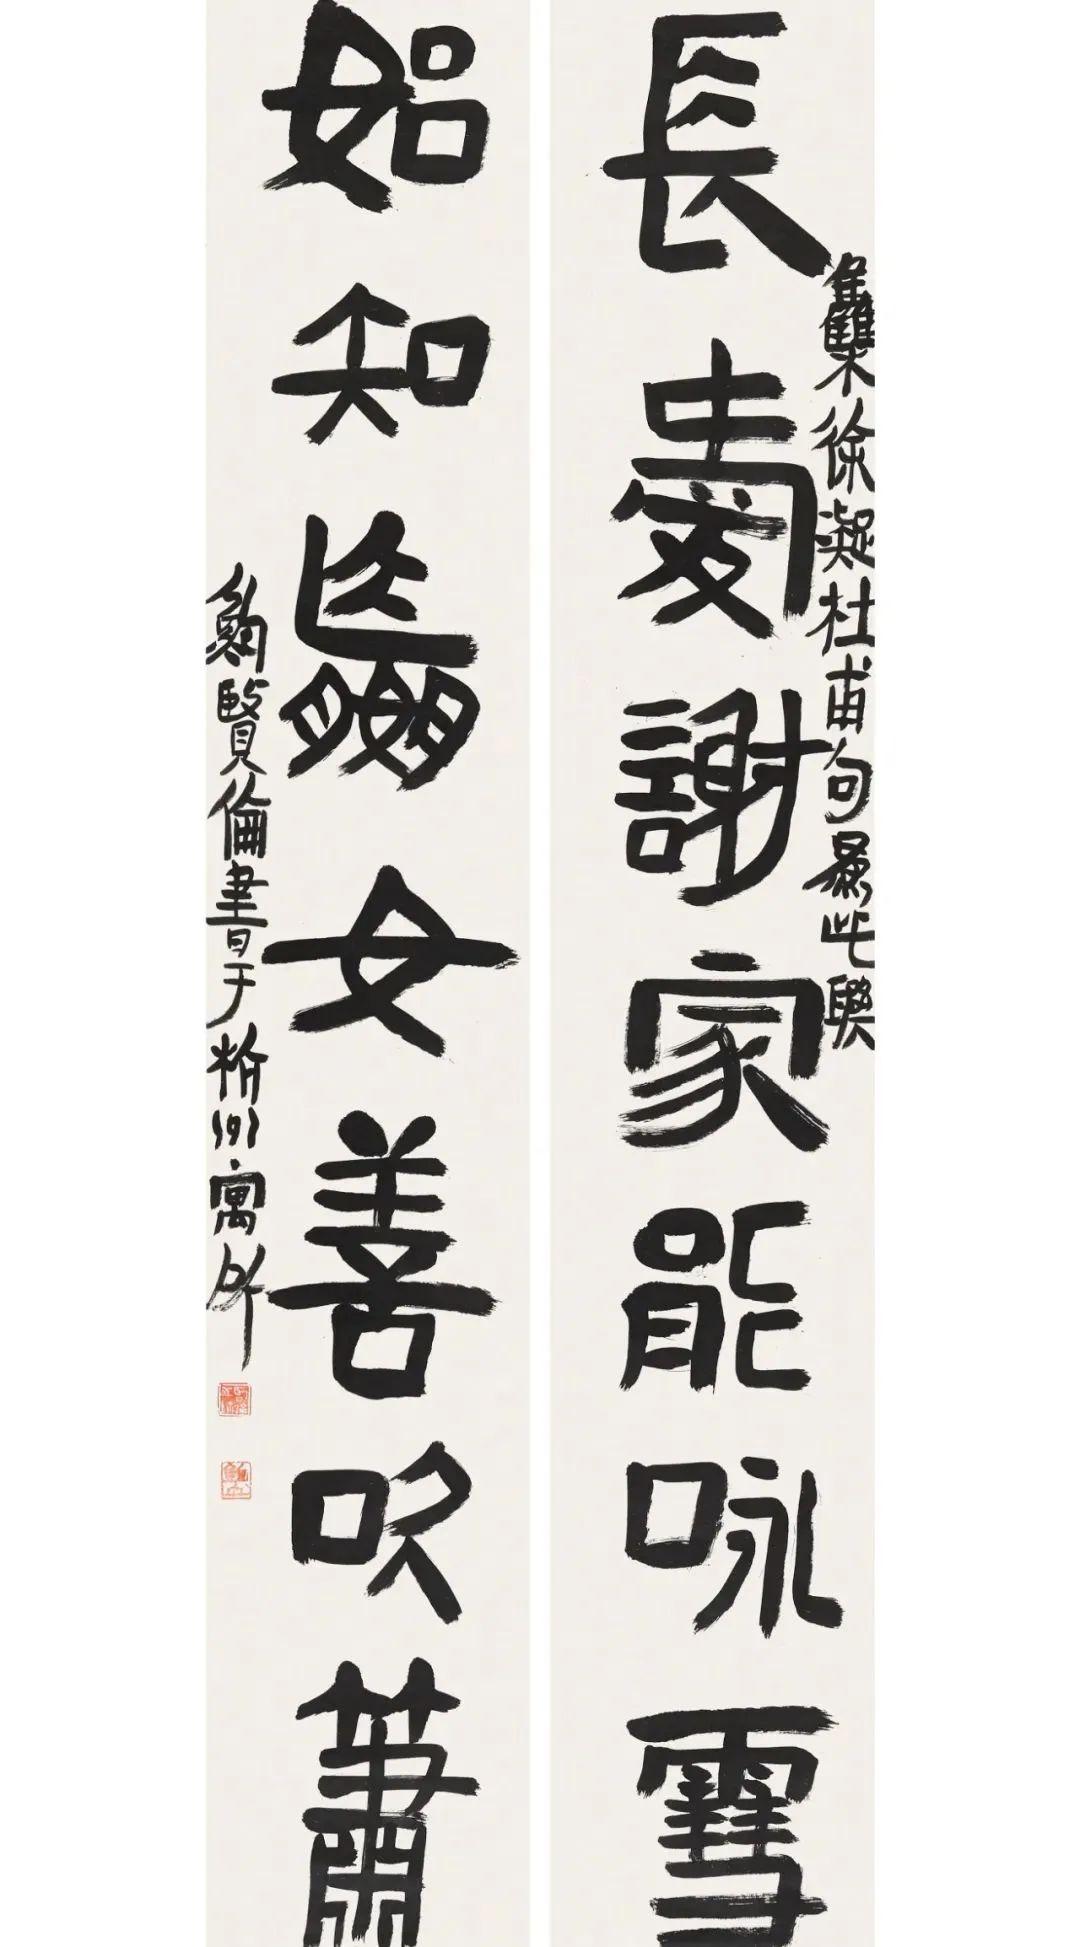 長愛謝家能咏雪
雧徐凝杜甫句為此聯
始知嬴女善吹簫
鮑賢倫書于杭州寓所